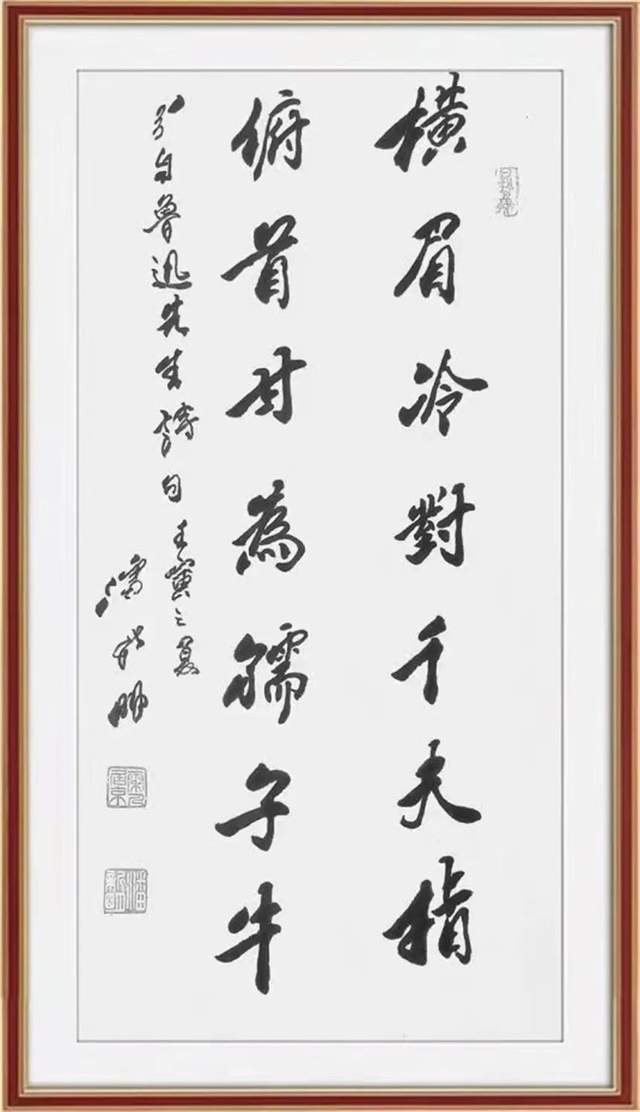 橫眉冷對千夫指
俯首甘為孺子牛
引自魯迅先生詩句壬寅之夏
潘